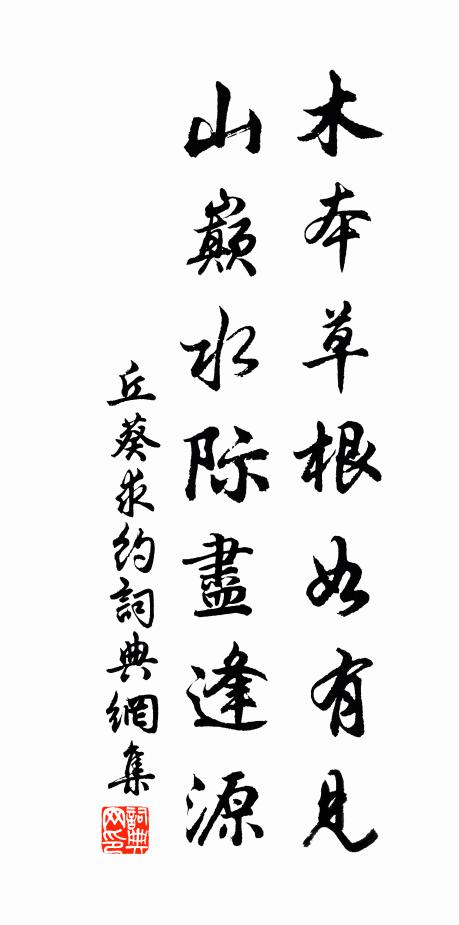 木本草根如有見
山巔水际盡逢源
丘葵求约詞典網集
詞典网印